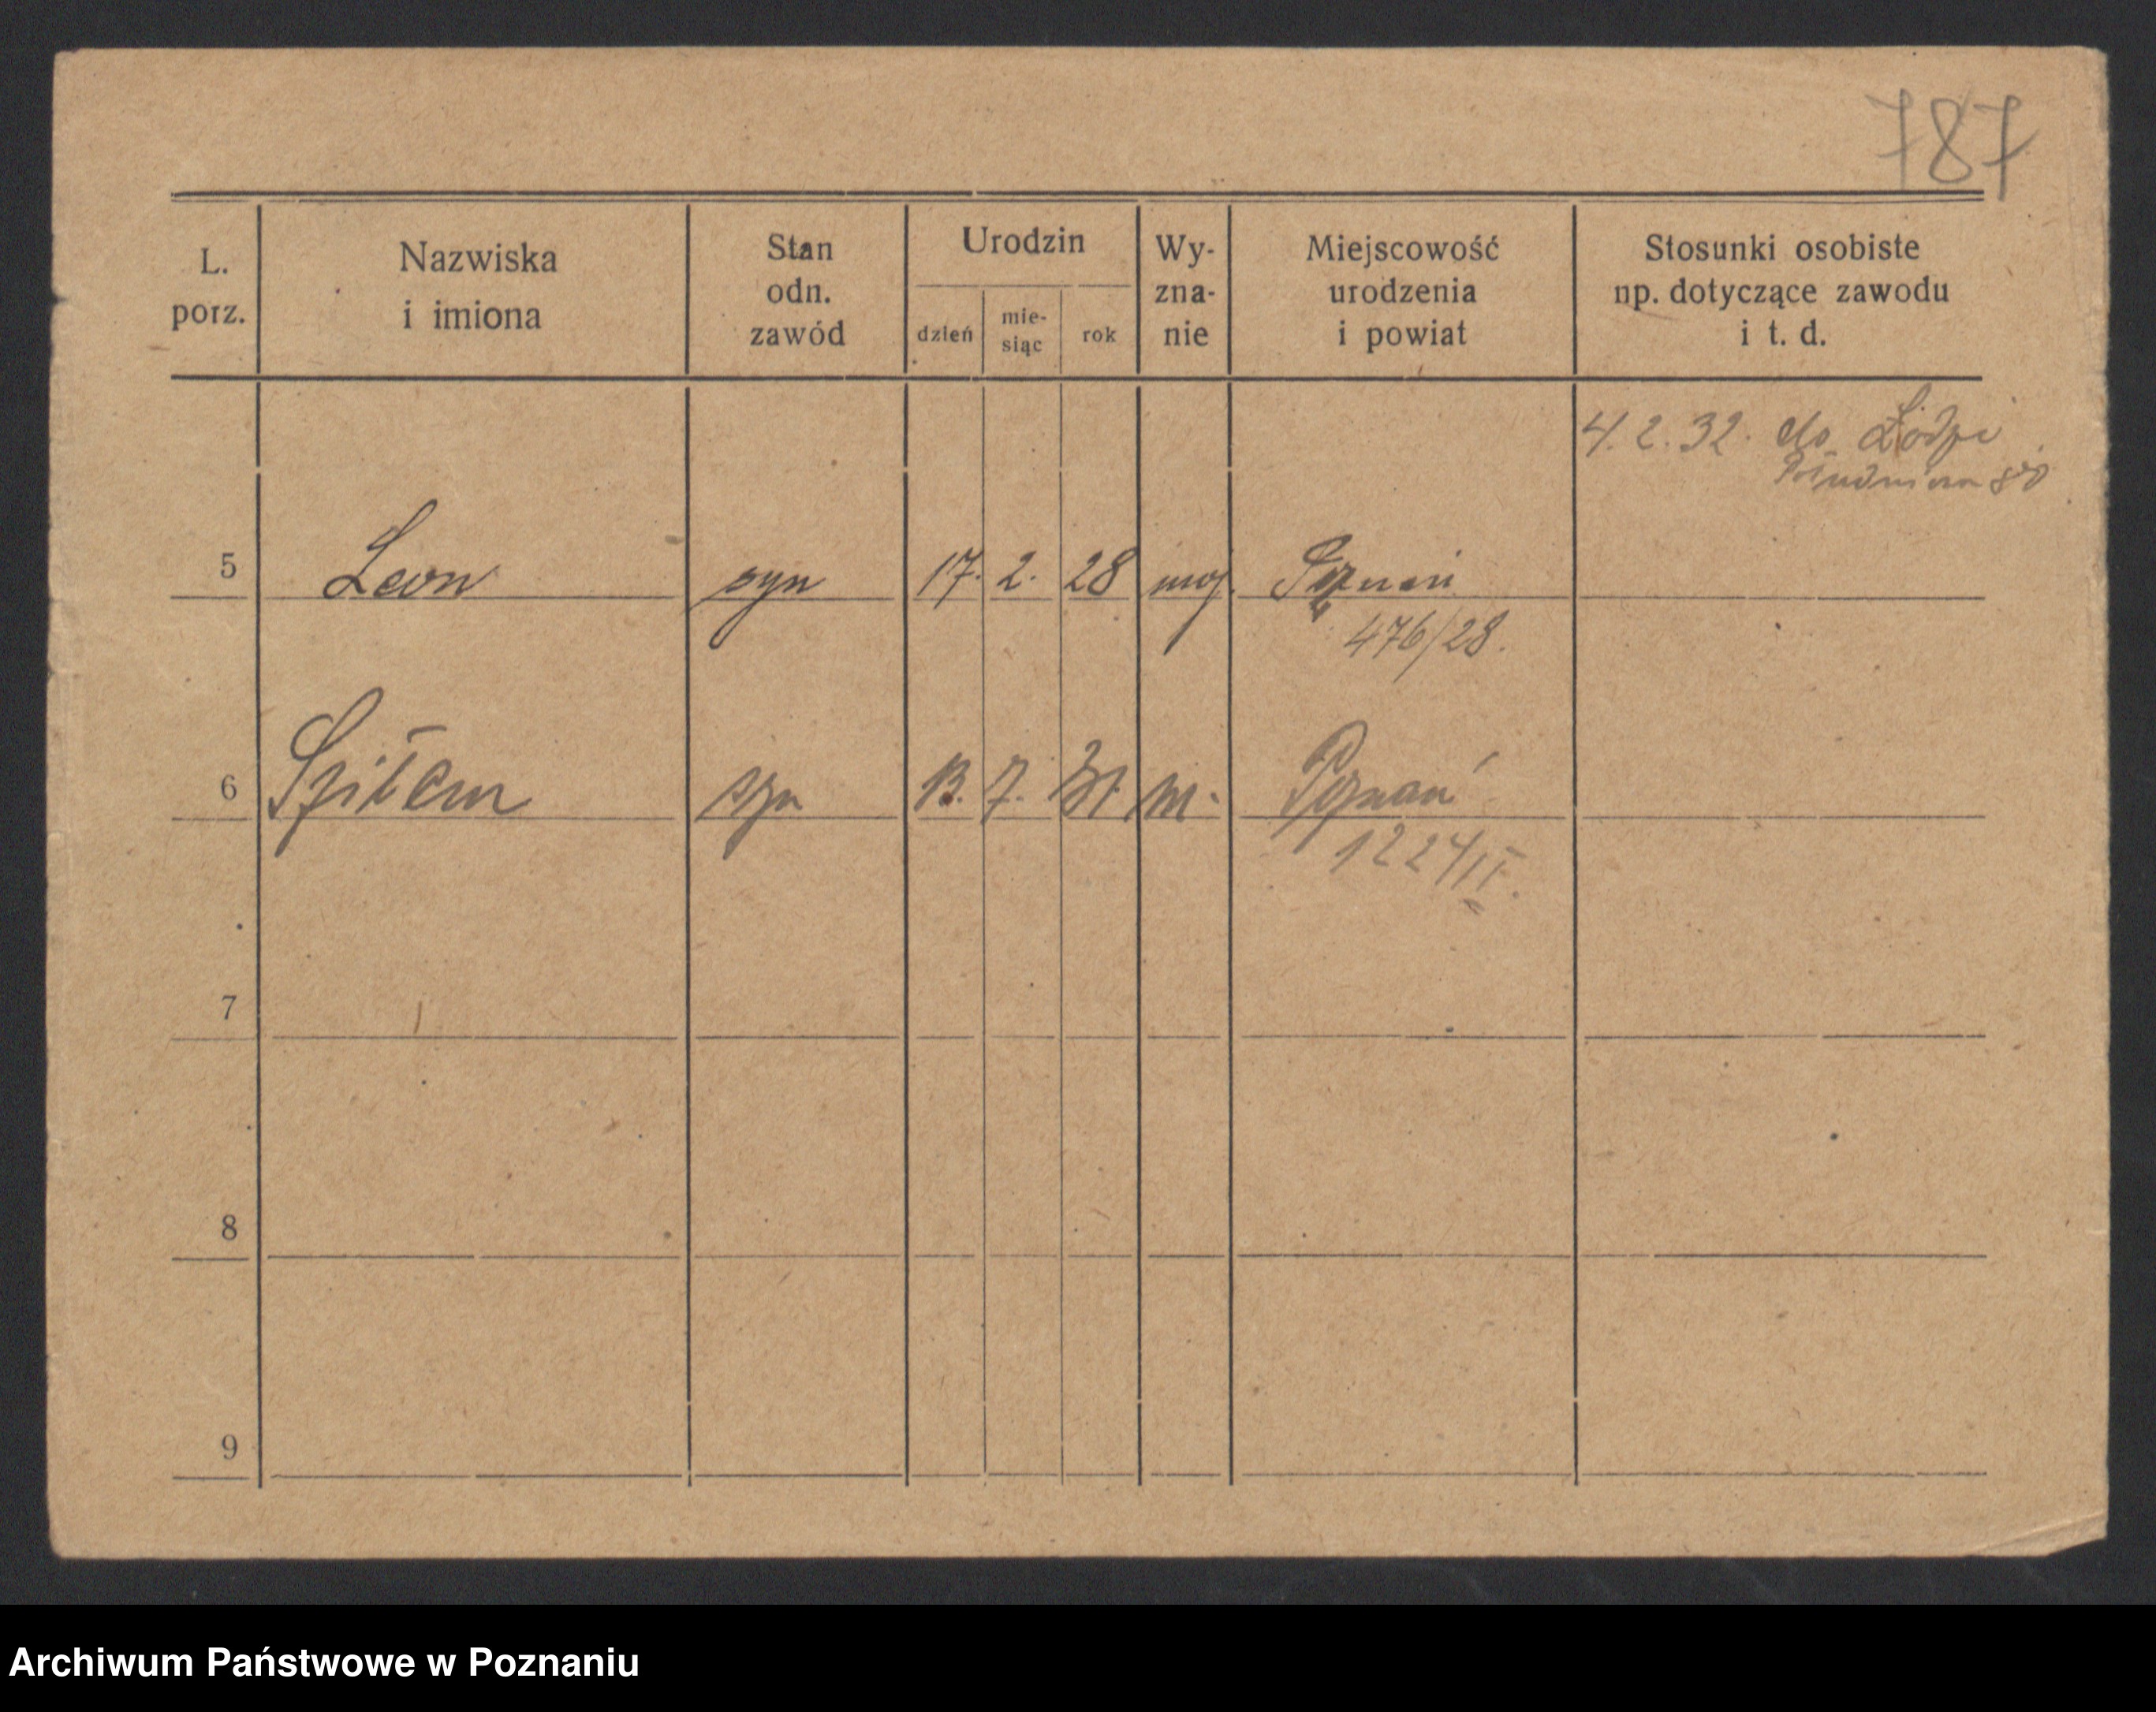 787
L. porz.
Nazwiska i imiona
Stan odn. zawód
Urodzin
dzień
mie-siąc
rok
Wy-zna-nie
Miejscowość urodzenia i powiat
Stosunki osobiste np. dotyczące zawodu i t. d.
4. 2. 32. do Łodzi
Południowa
5 Leon syn 17. 2. 28 moj. Poznań
476/28.
6 syn 13. 7. 31. m. Poznań
1224/II.
7
8
9
Archiwum Państwowe w Poznaniu